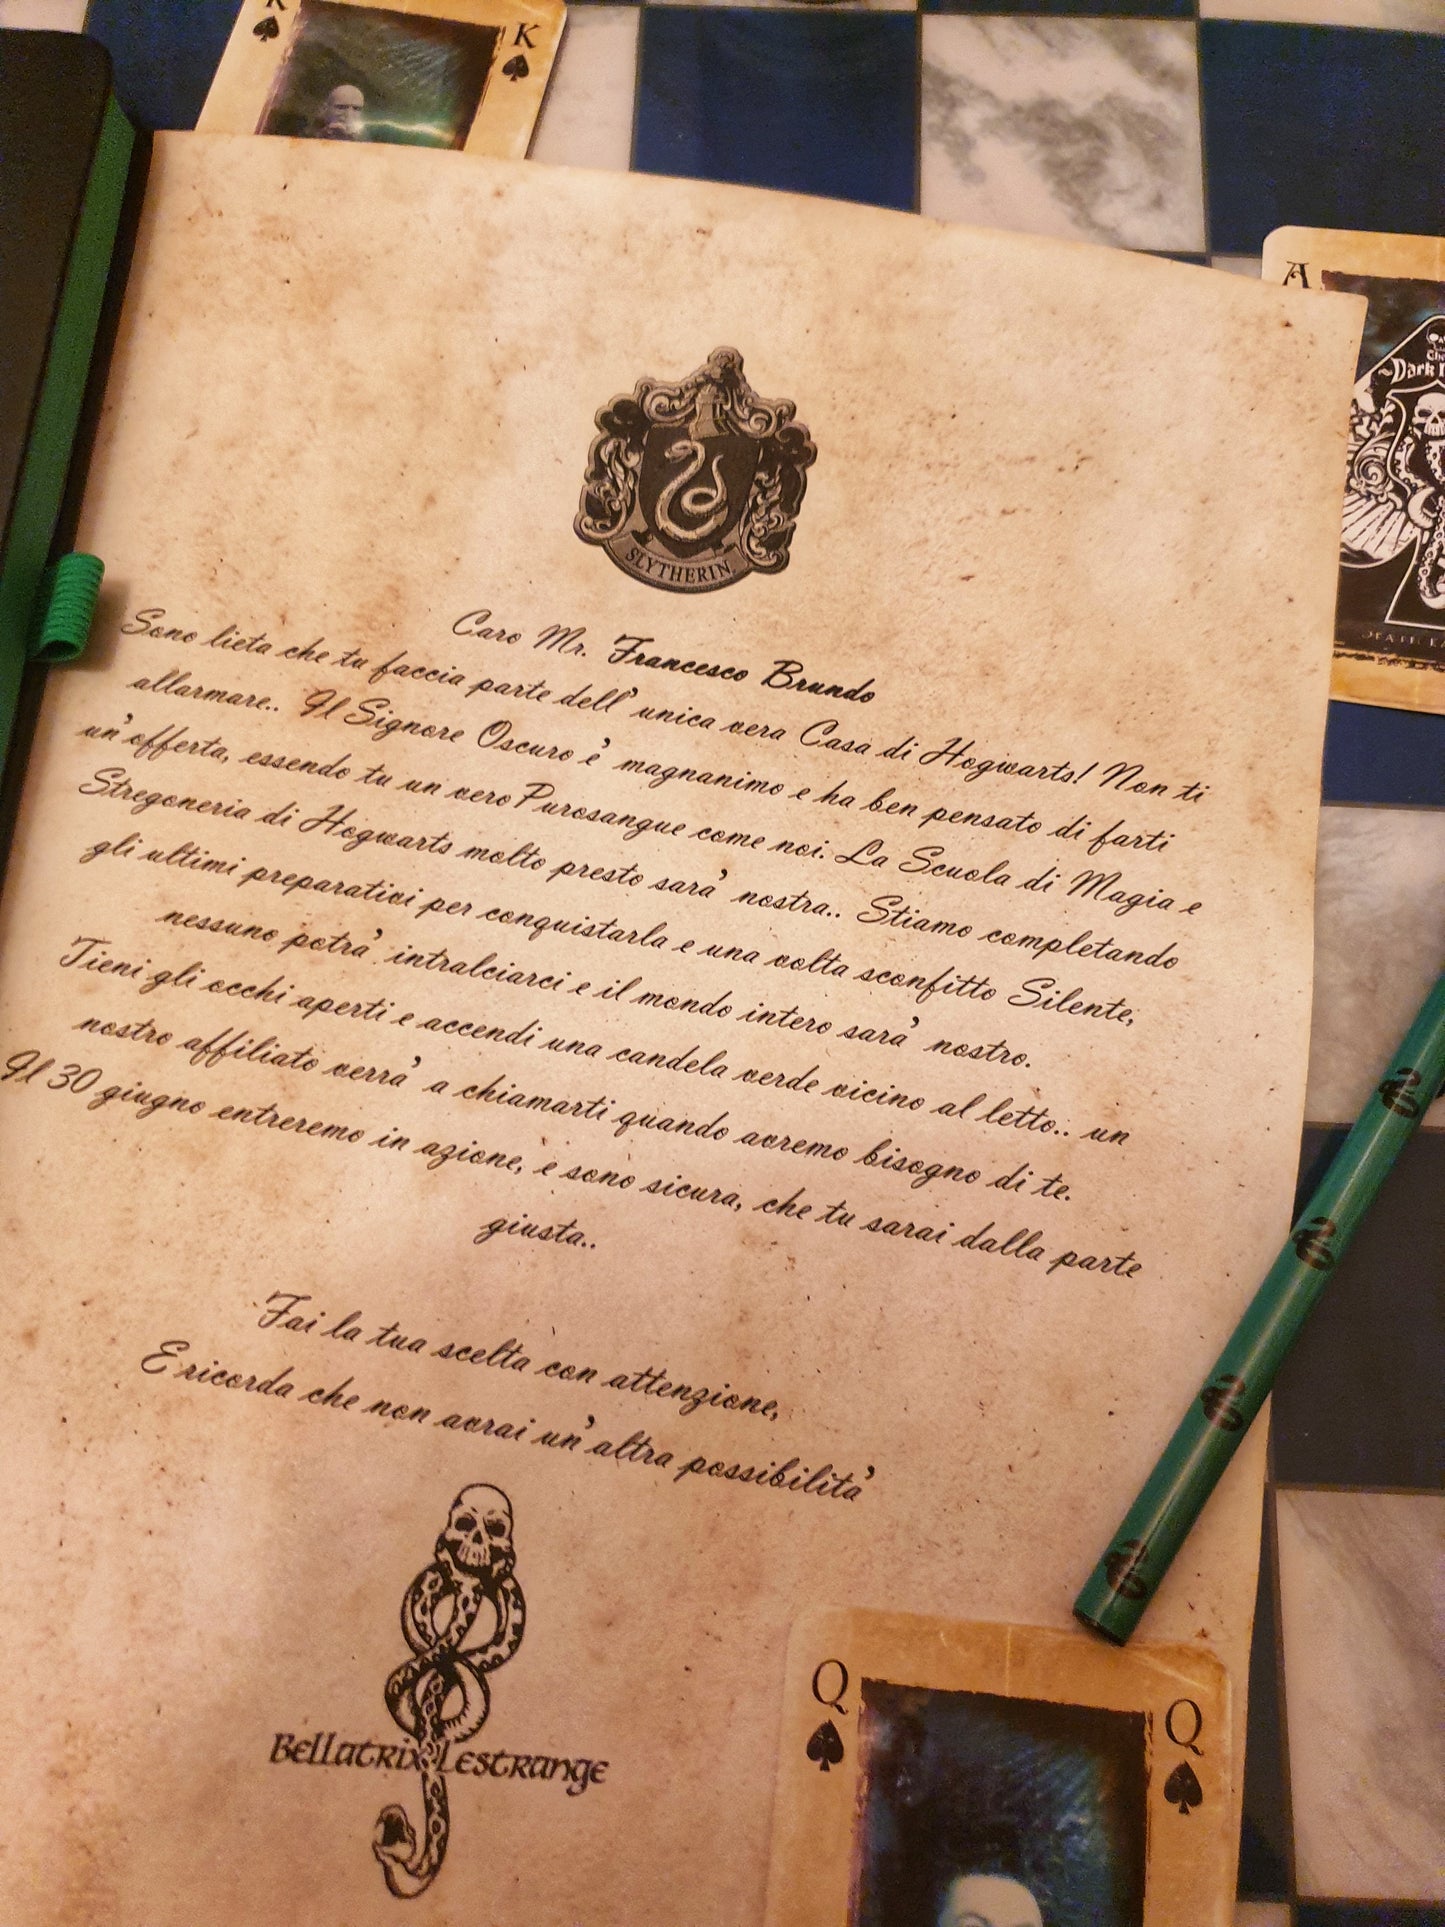 K
K
A
Dark
SLYTHERIN
Caro Mr. Francesco Brundo
Sono lieta che tu faccia parte dell'unica vera Casa di Hogwarts! Non ti
allarmare.. Il Signore Oscuro è magnanimo e ha ben pensato di farti
un'offerta, essendo tu un vero Purosangue come noi. La Scuola di Magia e
Stregoneria di Hogwarts molto presto sarà nostra.. Stiamo completando
gli ultimi preparativi per conquistarla e una volta sconfitto Silente,
nessuno potrà intralciarci e il mondo intero sarà nostro.
Tieni gli occhi aperti e accendi una candela verde vicino al letto.. un
nostro affiliato verrà a chiamarti quando avremo bisogno di te.
Il 30 giugno entreremo in azione, e sono sicura, che tu sarai dalla parte
giusta..
Fai la tua scelta con attenzione,
E ricorda che non avrai un'altra possibilità
Bellatrix Lestrange
Q
Q